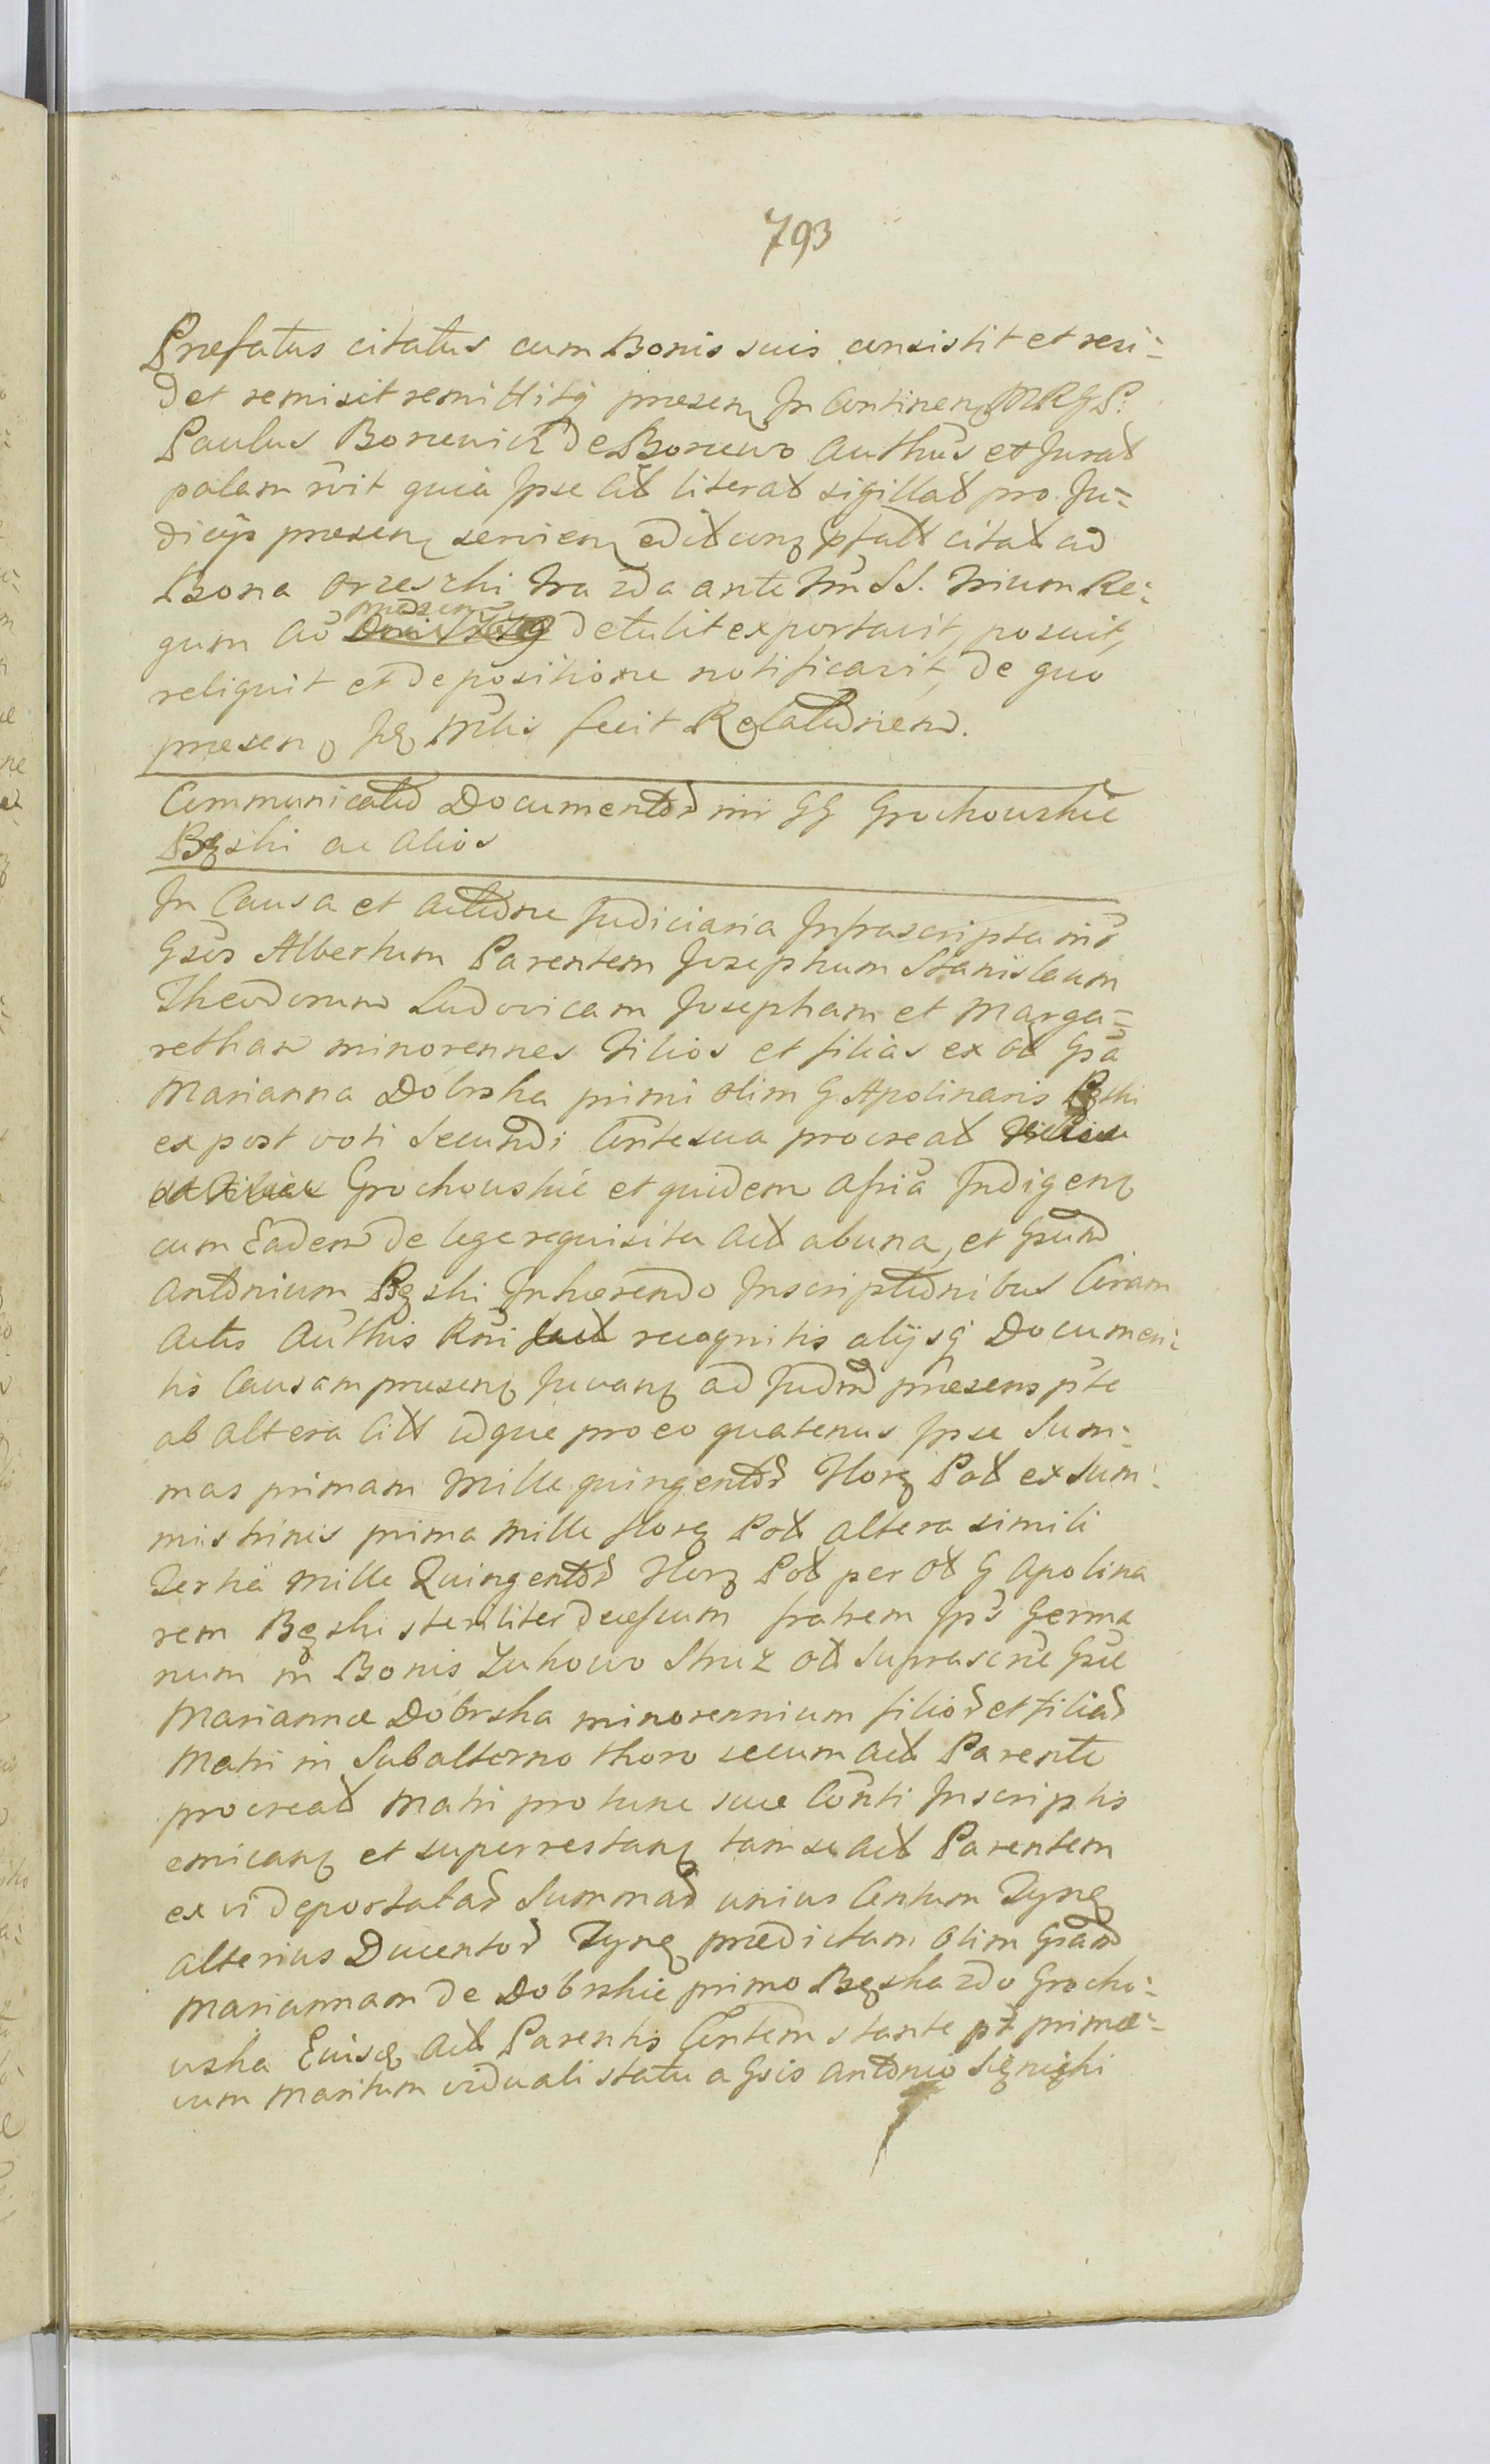 793
Præfatus citatus cum Bonis suis consistit et resi-
det remisit remittitq præsen In Continen MRGP.
Paulus Boruwich de Boruwo Authus et Jurat
palam rvit quia Ipse Cit literat sigillat pro Ju-
dicijs præsen servien edit cumq ptatt citat ad
Bona Orzeszki fra 2da ante fm SS. Trium Re-
gum Ao præsen detulit exportavit, posuit,
reliquit et depositione notificavit, de quo
præsen fecit Relationem.
Communicatio Documentor inr GG Grochowskie
Bęski ac alios
In Causa et actione Judiciaria Infrascripta inr
Gsos Albertum Parentem Josephum Stanislaum
Theodorum Ludovicam Josepham et Marga-
retham minorennes Filios et filias ex ol Gsa
Marianna Dobrska primi olim G Apolinaris Bęski
ex post voti Secundi Contesua procreat
Grochowskie et quidem Asria Indigen
cum Eadem de lege requisita act abuna, et Gsum
Antonium Bęski Inhærendo Inscriptionibus Coram
Actis Authis Rni recognitis alijsq Documen-
tis Causam præsen Juvan ad Judm præsens pte
ab altera Citt idque pro eo quatenus Ipse Sum-
mas primam Mille quingentor Flor Pol ex Sum-
mis trinis prima Mille flor Pol altera simili
Tertia Mille Quingentor Flor Pol per ol G Apolina
rem Bęski steriliter decessum fratrem Ips Germa
num in Bonis Zukowo Struz ol Suprascrie Gsæ
Mariannæ Dobrska minorennium filior et filiar
Matri in Subalterno thoro secum act Parente
procreat Matri pro tunc suæ Conti Inscriptis
emican et superrestan tam se act Parentem
ex vi deportatar Summar unius Centum Tynf
alterius Ducentor Tynf prædictam Olim Gsam
Mariannam de Dobrskie primo Bęska 2do Grocho-
wska Eiusq Act Parentis Contem stante pt primæ-
vum Maritum viduali statu a Gsis Antonio